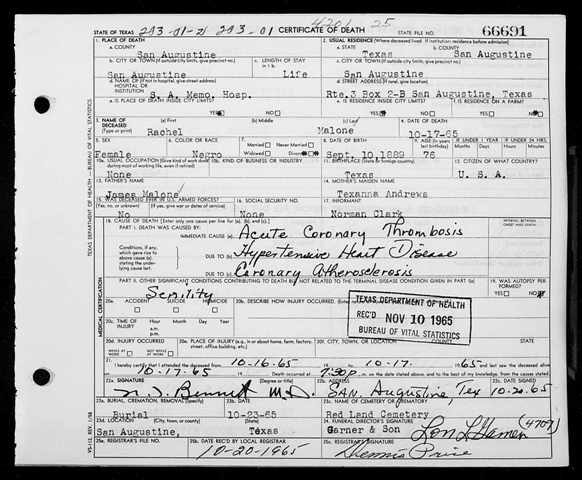 STATE OF TEXAS 203-01-2 203-01 CERTIFICATE OF DEATH 4201 25 STATE FILE NO. 66691
1. PLACE OF DEATH 2. USUAL RESIDENCE (Where deceased lived. If institution: residence before admission)
a. COUNTY a. STATE b. COUNTY
San Augustine Texas San Augustine
b. CITY OR TOWN (If outside city limits, give precinct no.) c. LENGTH OF STAY in 1 b. c. CITY OR TOWN (If outside city limits, give precinct no.)
San Augustine Life San Augustine
d. NAME OF (If not in hospital, give street address) HOSPITAL OR INSTITUTION d. STREET ADDRESS (If rural, give location)
S. A. Memo. Hosp. Rte. 3 Box 2-B San Augustine, Texas
e. IS PLACE OF DEATH INSIDE CITY LIMITS? YES NO e. IS RESIDENCE INSIDE CITY LIMITS? YES NO f. IS RESIDENCE ON A FARM? YES NO
3. NAME OF DECEASED (Type or print) (a) First (b) Middle (c) Last 4. DATE OF DEATH
Rachel Malone 10-17-65
5. SEX 6. COLOR OR RACE 7. Married Never Married Widowed Divorced 8. DATE OF BIRTH 9. AGE IF UNDER 1 YEAR IF UNDER 24 HRS.
Female Negro Sept. 10, 1889 76
10a. USUAL OCCUPATION 10b. KIND OF BUSINESS OR INDUSTRY 11. BIRTHPLACE (State or foreign country) 12. CITIZEN OF WHAT COUNTRY?
None Texas U. S. A.
13. FATHER'S NAME 14. MOTHER'S MAIDEN NAME
James Malone Texanna Andrews
15. WAS DECEASED EVER IN U.S. ARMED FORCES? 16. SOCIAL SECURITY NO. 17. INFORMANT
No None Norman Clark
18. CAUSE OF DEATH [Enter only one cause per line for (a), (b), and (c).] INTERVAL BETWEEN ONSET AND DEATH
PART I. DEATH WAS CAUSED BY:
IMMEDIATE CAUSE (a) Acute Coronary Thrombosis
Conditions, if any, which gave rise to above cause (a) stating the underlying cause last.
DUE TO (b) Hypertensive Heart Disease
DUE TO (c) Coronary Atherosclerosis
PART II. OTHER SIGNIFICANT CONDITIONS CONTRIBUTING TO DEATH BUT NOT RELATED TO THE TERMINAL DISEASE CONDITION GIVEN IN PART I(a) 19. WAS AUTOPSY PERFORMED? YES NO
Senility
20a. ACCIDENT SUICIDE HOMICIDE 20b. DESCRIBE HOW INJURY OCCURRED.
20c. TIME OF INJURY Hour Month Day Year a.m. p.m.
20d. INJURY OCCURRED WHILE AT WORK NOT WHILE AT WORK 20e. PLACE OF INJURY (e.g., in or about home, farm, factory, street, office building, etc.) 20f. CITY, TOWN, OR LOCATION COUNTY STATE
TEXAS DEPARTMENT OF HEALTH
REC'D NOV 10 1965
BUREAU OF VITAL STATISTICS
21. I hereby certify that I attended the deceased from 10-16-65 to 10-17. 1965 and last saw the deceased alive
10-17-65 Death occurred at 7:30p m. on the date stated above, and to the best of my knowledge, from the causes stated.
22a. SIGNATURE (Degree or title) 22b. ADDRESS 22c. DATE SIGNED
Bennett M.D. San Augustine, Tex 10-20-65
23a. BURIAL, CREMATION, REMOVAL (Specify) 23b. DATE 23c. NAME OF CEMETERY OR CREMATORY
Burial 10-23-65 Red Land Cemetery
23d. LOCATION (City, town, or county) (State) 24. FUNERAL DIRECTOR'S SIGNATURE
San Augustine, Texas Garner & Son (4709)
25a. REGISTRAR'S FILE NO. 25b. DATE REC'D BY LOCAL REGISTRAR 25c. REGISTRAR'S SIGNATURE
10-20-1965 Price
TEXAS DEPARTMENT OF HEALTH—BUREAU OF VITAL STATISTICS
MEDICAL CERTIFICATION